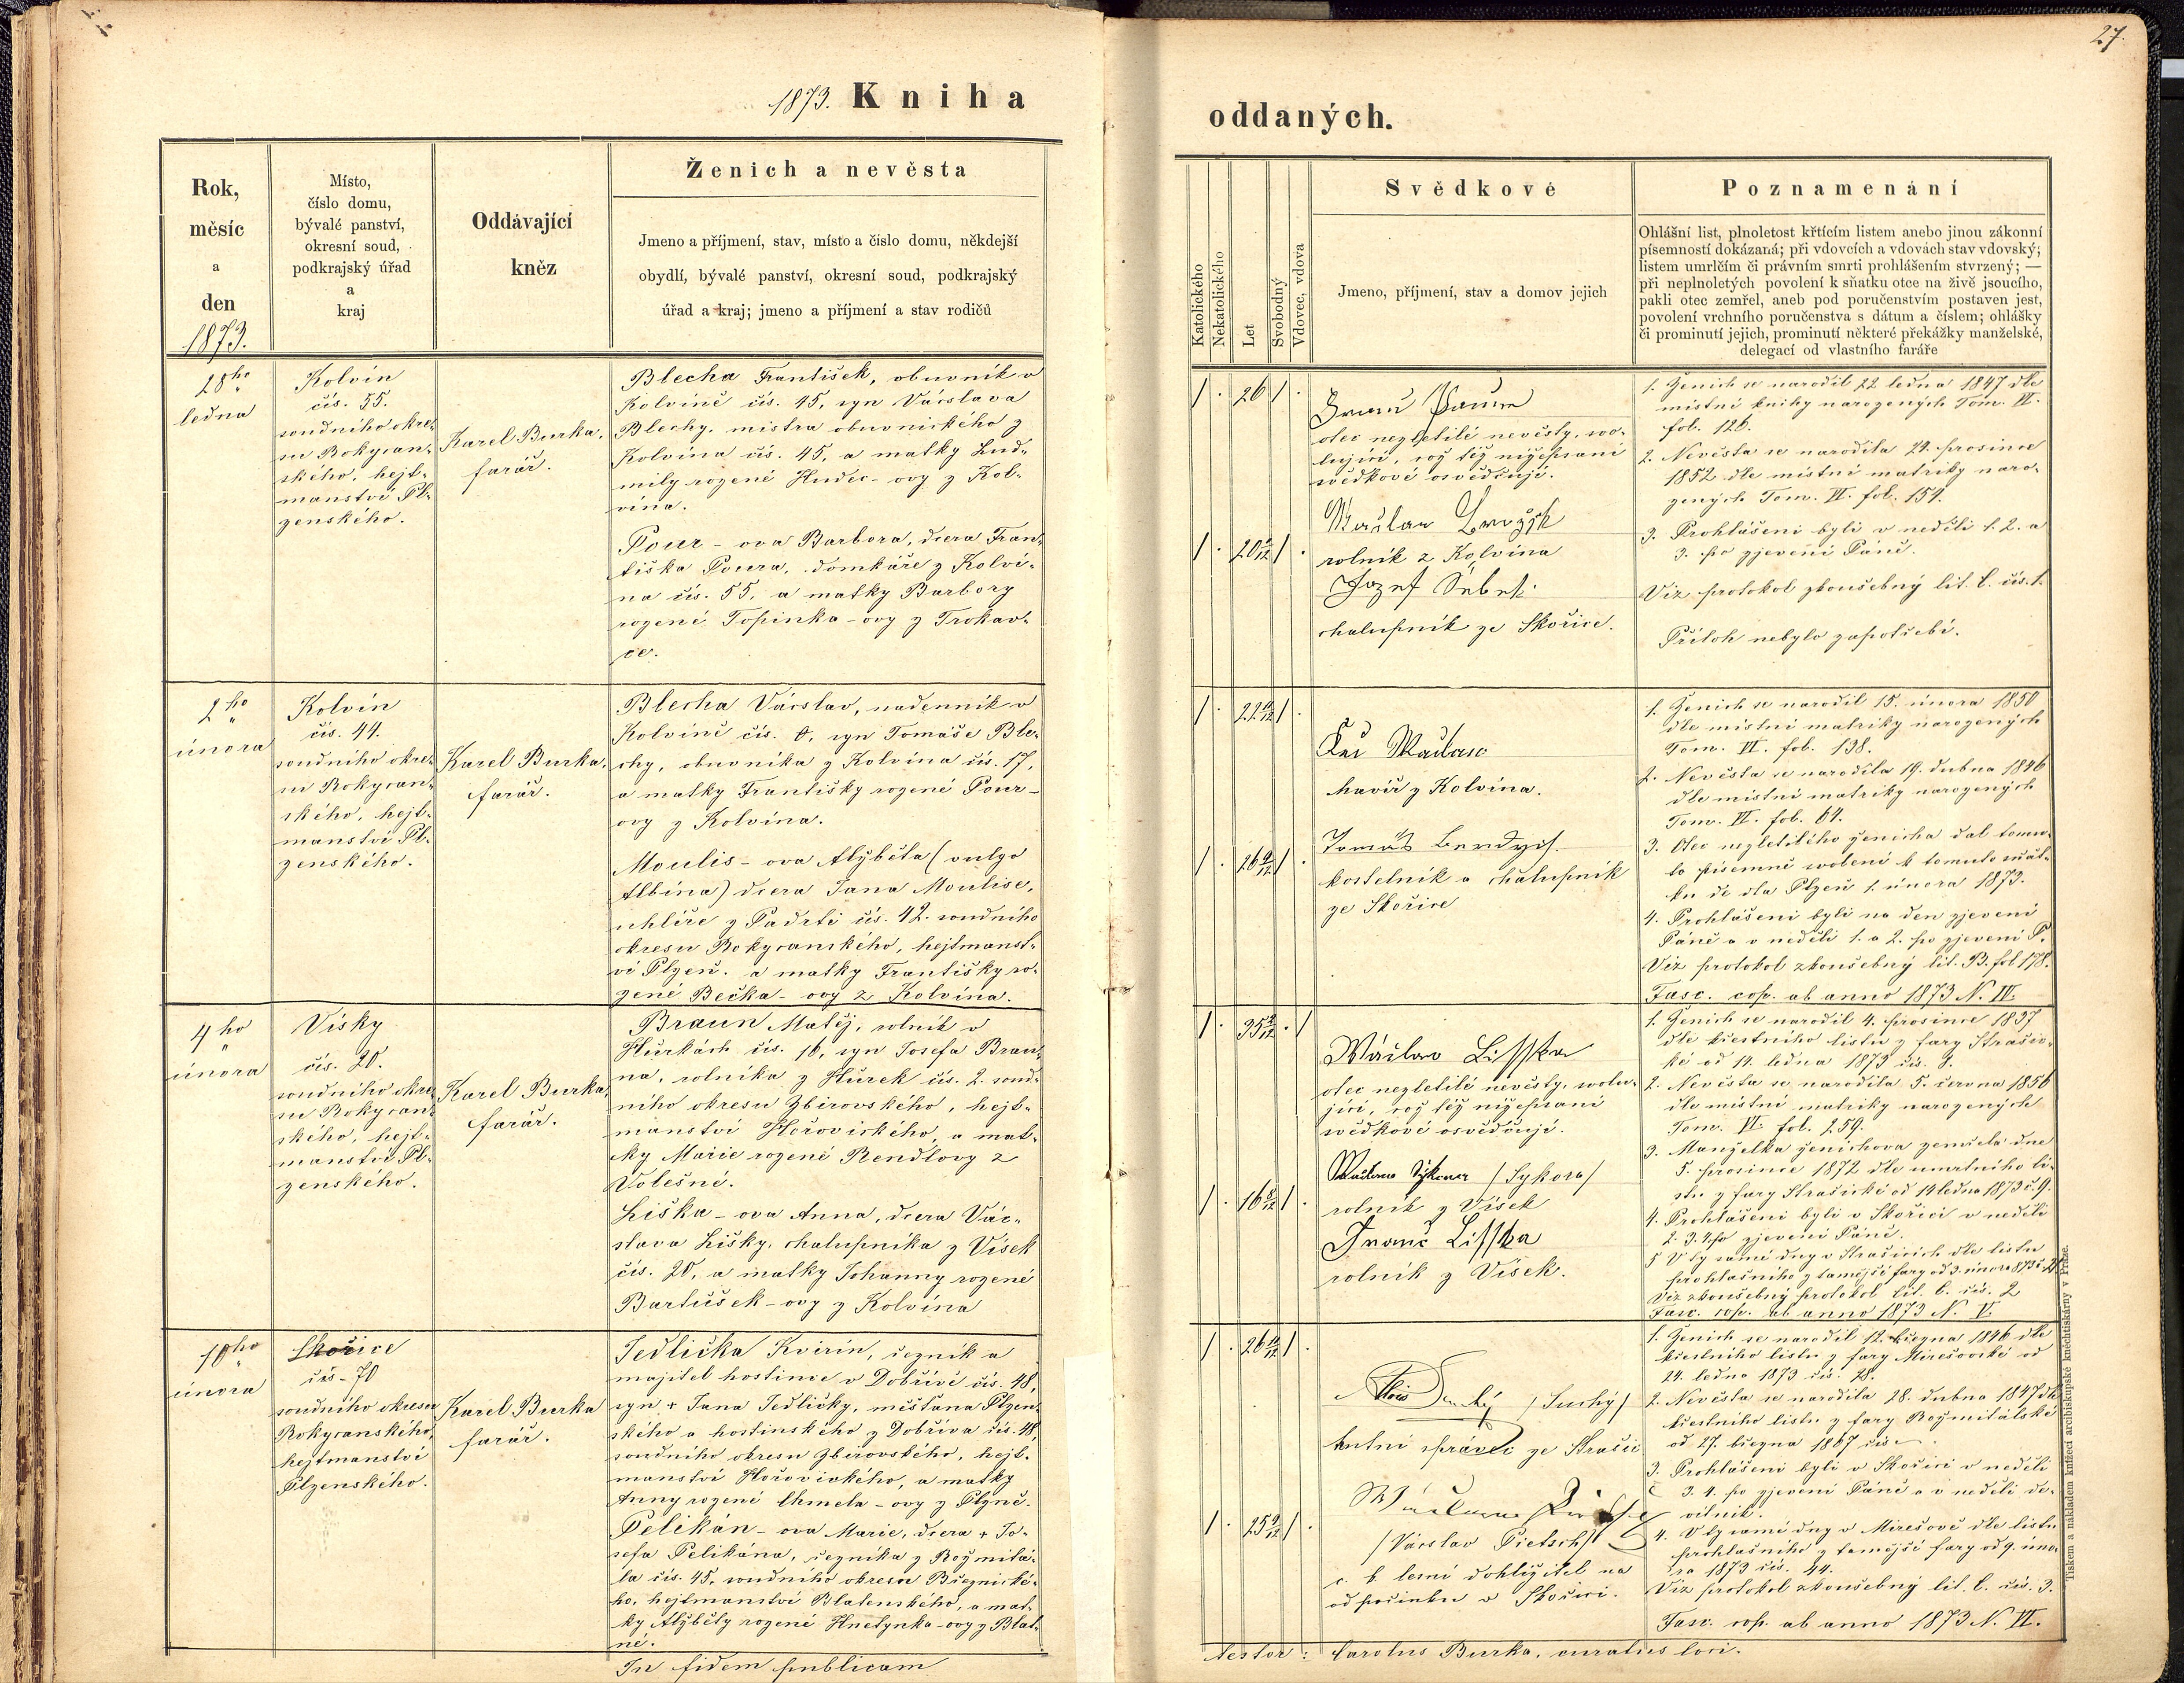 1873. Kniha
oddaných.
27.
Rok,
měsíc
a
den
1873.
Místo,
číslo domu,
bývalé panství,
okresní soud,
podkrajský úřad
a
kraj
Oddávající
kněz
Ženich a nevěsta
Jmeno a příjmení, stav, místo a číslo domu, někdejší
obydlí, bývalé panství, okresní soud, podkrajský
úřad a kraj; jmeno a příjmení a stav rodičů
Katolického
Nekatolického
Let
Svobodný
Vdovec, vdova
Svědkové
Jmeno, příjmení, stav a domov jejich
Poznamenání
Ohlášní list, plnoletost křtícím listem anebo jinou zákonní
písemností dokázaná; při vdovcích a vdovách stav vdovský;
listem umrlčím či právním smrti prohlášením stvrzený; —
při neplnoletých povolení k sňatku otce na živě jsoucího,
pakli otec zemřel, aneb pod poručenstvím postaven jest,
povolení vrchního poručenstva s dátum a číslem; ohlášky
či prominutí jejich, prominutí některé překážky manželské,
delegací od vlastního faráře
28ho
ledna
Kolvín
čís. 55.
soudního okre-
su Rokycan-
ského, hejt-
manství Pl-
zenského.
Karel Burka,
farář.
Blecha František, obuvník v
Kolvíně čís. 45, syn Vácslava
Blechy, mistra obuvnického z
Kolvína čís. 45, a matky Lud-
mily rozené Hudec-ovy z Kol-
vína.
Pour-ova Barbora, dcera Fran-
tiška Poura, domkáře z Kolví-
na čís. 55, a matky Barbory
rozené Topinka-ovy z Trokav-
ce.
1 . 26 1 .
1 . 20 1/12 1 .
otec nezletilé nevěsty, svo-
lující, což též nížepsaní
svědkové osvědčují.
rolník z Kolvína
Jozef Šebek.
chalupník ze Skořice.
1. Ženich se narodil 22 ledna 1847 dle
místní knihy narozených Tom. VI.
fol. 126.
2. Nevěsta se narodila 24. prosince
1852 dle místní matriky naro-
zených Tom. VI. fol. 154.
3. Prohlášeni byli v neděli 1. 2. a
3. po zjevení Páně.
Viz protokol zkoušebný lit. C. čís. 1.
Příloh nebylo zapotřebí.
2ho
února
Kolvín
čís. 44.
soudního okre-
su Rokycan-
ského, hejt-
manství Pl-
zenského.
Karel Burka,
farář.
Blecha Vácslav, nadenník v
Kolvíně čís. 8, syn Tomáše Ble-
chy, obuvníka z Kolvína čís. 17,
a matky Františky rozené Pour-
ovy z Kolvína.
Moulis-ova Alžběta (vulgo
Albína) dcera Jana Moulise,
uhlíře z Padrti čís. 42. soudního
okresu Rokycanského, hejtmanst-
ví Plzeň. a matky Františky ro-
zené Bečka-ovy z Kolvína.
havíř z Kolvína.
Tomáš Berdych.
kostelník a chalupník
ze Skořice
1. Ženich se narodil 15. února 1850
dle místní matriky narozených
Tom. VI. fol. 138.
2. Nevěsta se narodila 19. dubna 1846
dle místní matriky narozených
Tom. VI. fol. 64.
3. Otec nezletilého ženicha dal tomu-
to písemné svolení k tomuto sňat-
ku de dto Plzeň 1. února 1873.
4. Prohlášeni byli na den zjevení
Páně a v neděli 1. a 2. po zjevení P.
Viz protokol zkoušebný lit. B. fol 178.
Fasc. cop. ab anno 1873 N. IV.
4ho
února
Vísky
čís. 20.
soudního okre-
su Rokycan-
ského, hejt-
manství Pl-
zenského.
Karel Burka,
farář.
Braun Matěj, rolník v
Hůrkách čís. 16, syn Josefa Brau-
na, rolníka z Hůrek čís. 2. soud-
ního okresu Zbirovského, hejt-
manství Hořovického, a mat-
ky Marie rozené Rendlovy z
Volešné.
Liška-ova Anna, dcera Vác-
slava Lišky, chalupníka z Vísek
čís. 20, a matky Johanny rozené
Bartůšek-ovy z Kolvína
Wáclaw Lisska
otec nezletilé nevěsty, svolu-
jící, což též nížepsaní
svědkové osvědčují.
/Sykora/
rolník z Vísek
Franc Lisska
rolník z Vísek.
1. Ženich se narodil 4. prosince 1837
dle křestního listu z fary Strašic-
ké od 14. ledna 1873 čís. 8.
2. Nevěsta se narodila 5. června 1856
dle místní matriky narozených
Tom. VI. fol. 259.
3. Manželka ženichova zemřela dne
5. prosince 1872 dle úmrtního li-
stu z fary Strašické od 14 ledna 1873 č. 9.
4. Prohlášeni byli v Skořici v neděli
2. 3. 4. po zjevení Páně.
5 V ty samé dny v Strašicích dle listu
prohlašního z tamější fary od 3. února 1873 č.
Viz zkoušebný protokol lit. C. čís. 2
Fasc. cop. ab anno 1873 N. V.
10ho
února
Skořice
čís-70
soudního okresu
Rokycanského,
hejtmanství
Plzenského.
Karel Burka
farář.
Jedlička Kvirin, řezník a
majitel hostince v Dobřívě čís. 48,
syn + Jana Jedličky, měšťana Plzen-
ského a hostinského z Dobříva čís. 48,
soudního okresu Zbirovského, hejt-
manství Hořovického, a matky
Anny rozené Chmela-ovy z Plzně.
Pelikán-ova Marie, dcera + Jo-
sefa Pelikána, řezníka z Rožmitá-
la čís. 45, soudního okresu Březnické-
ho, hejtmanství Blatenského, a mat-
ky Alžběty rozené Hnetynka-ovy z Blat-
né.
/Suchý/
hutní správce ze Strašic
/Vácslav Pietsch/
c. k. lesní dohlížitel na
odpočinku v Skořici.
1. Ženich se narodil 12. března 1846 dle
křestního listu z fary Mirešovské od
24. ledna 1873 čís. 28.
2. Nevěsta se narodila 28. dubna 1847 dle
křestního listu z fary Rožmitálské
od 27. března 1867 čís
3. Prohlášeni byli v Skořici v neděli
3. 4. po zjevení Páně a v neděli de-
vítník.
4. V ty samé dny v Mirešově dle listu
prohlašního z tamější fary od 9. úno-
ra 1873 čís. 44.
Viz protokol zkoušebný lit. C. čís. 3.
Fasc. cop. ab anno 1873 N. VI.
In fidem publicam
Nestor: Carolus Burka, curatus loci.
Tiskem a nákladem knížecí arcibiskupské knihtiskárny v Praze.